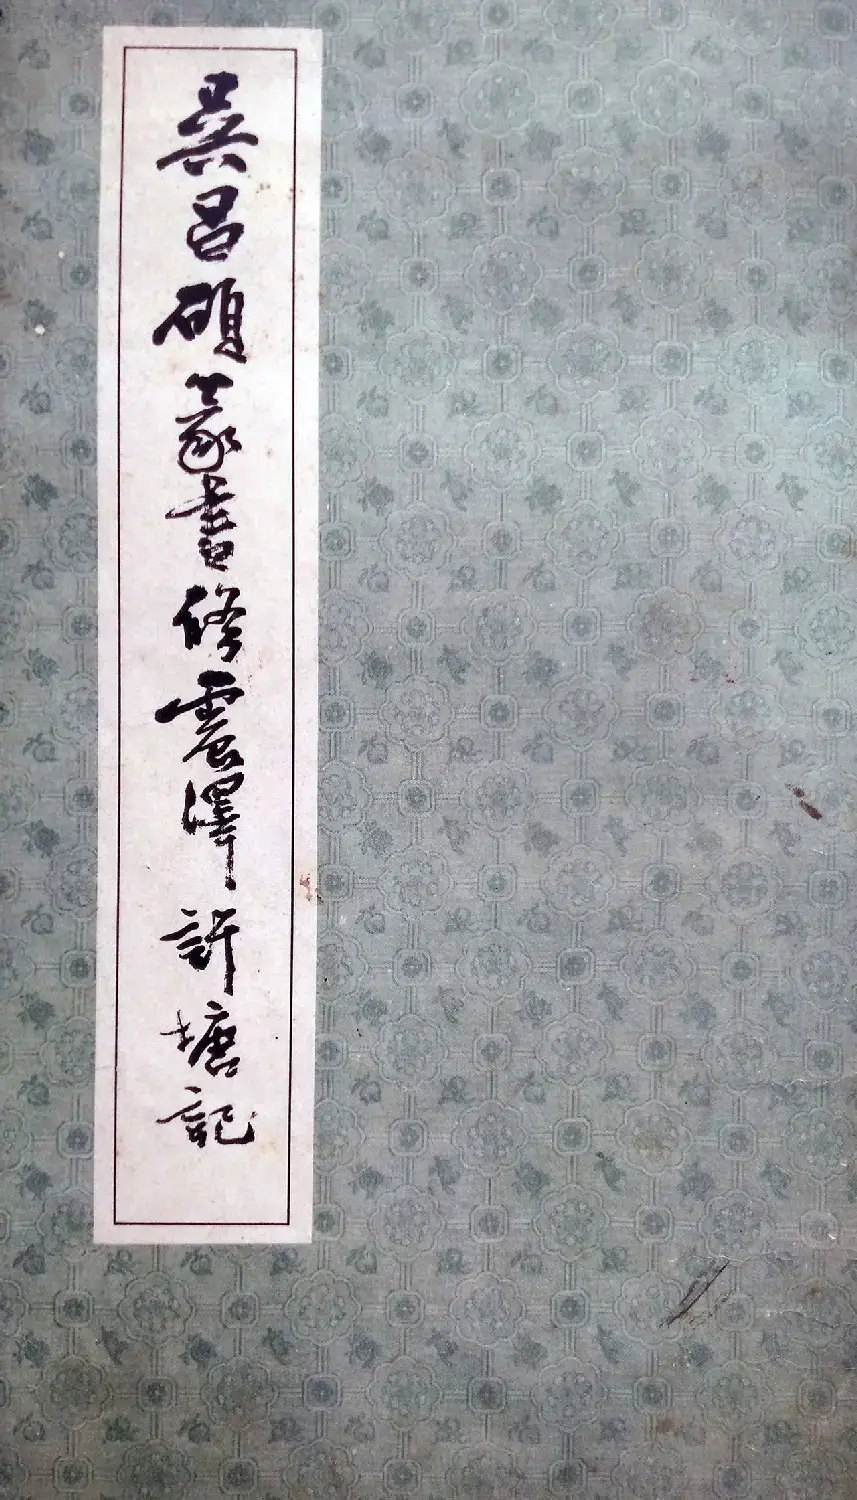 吳昌碩篆書修震澤許塘記